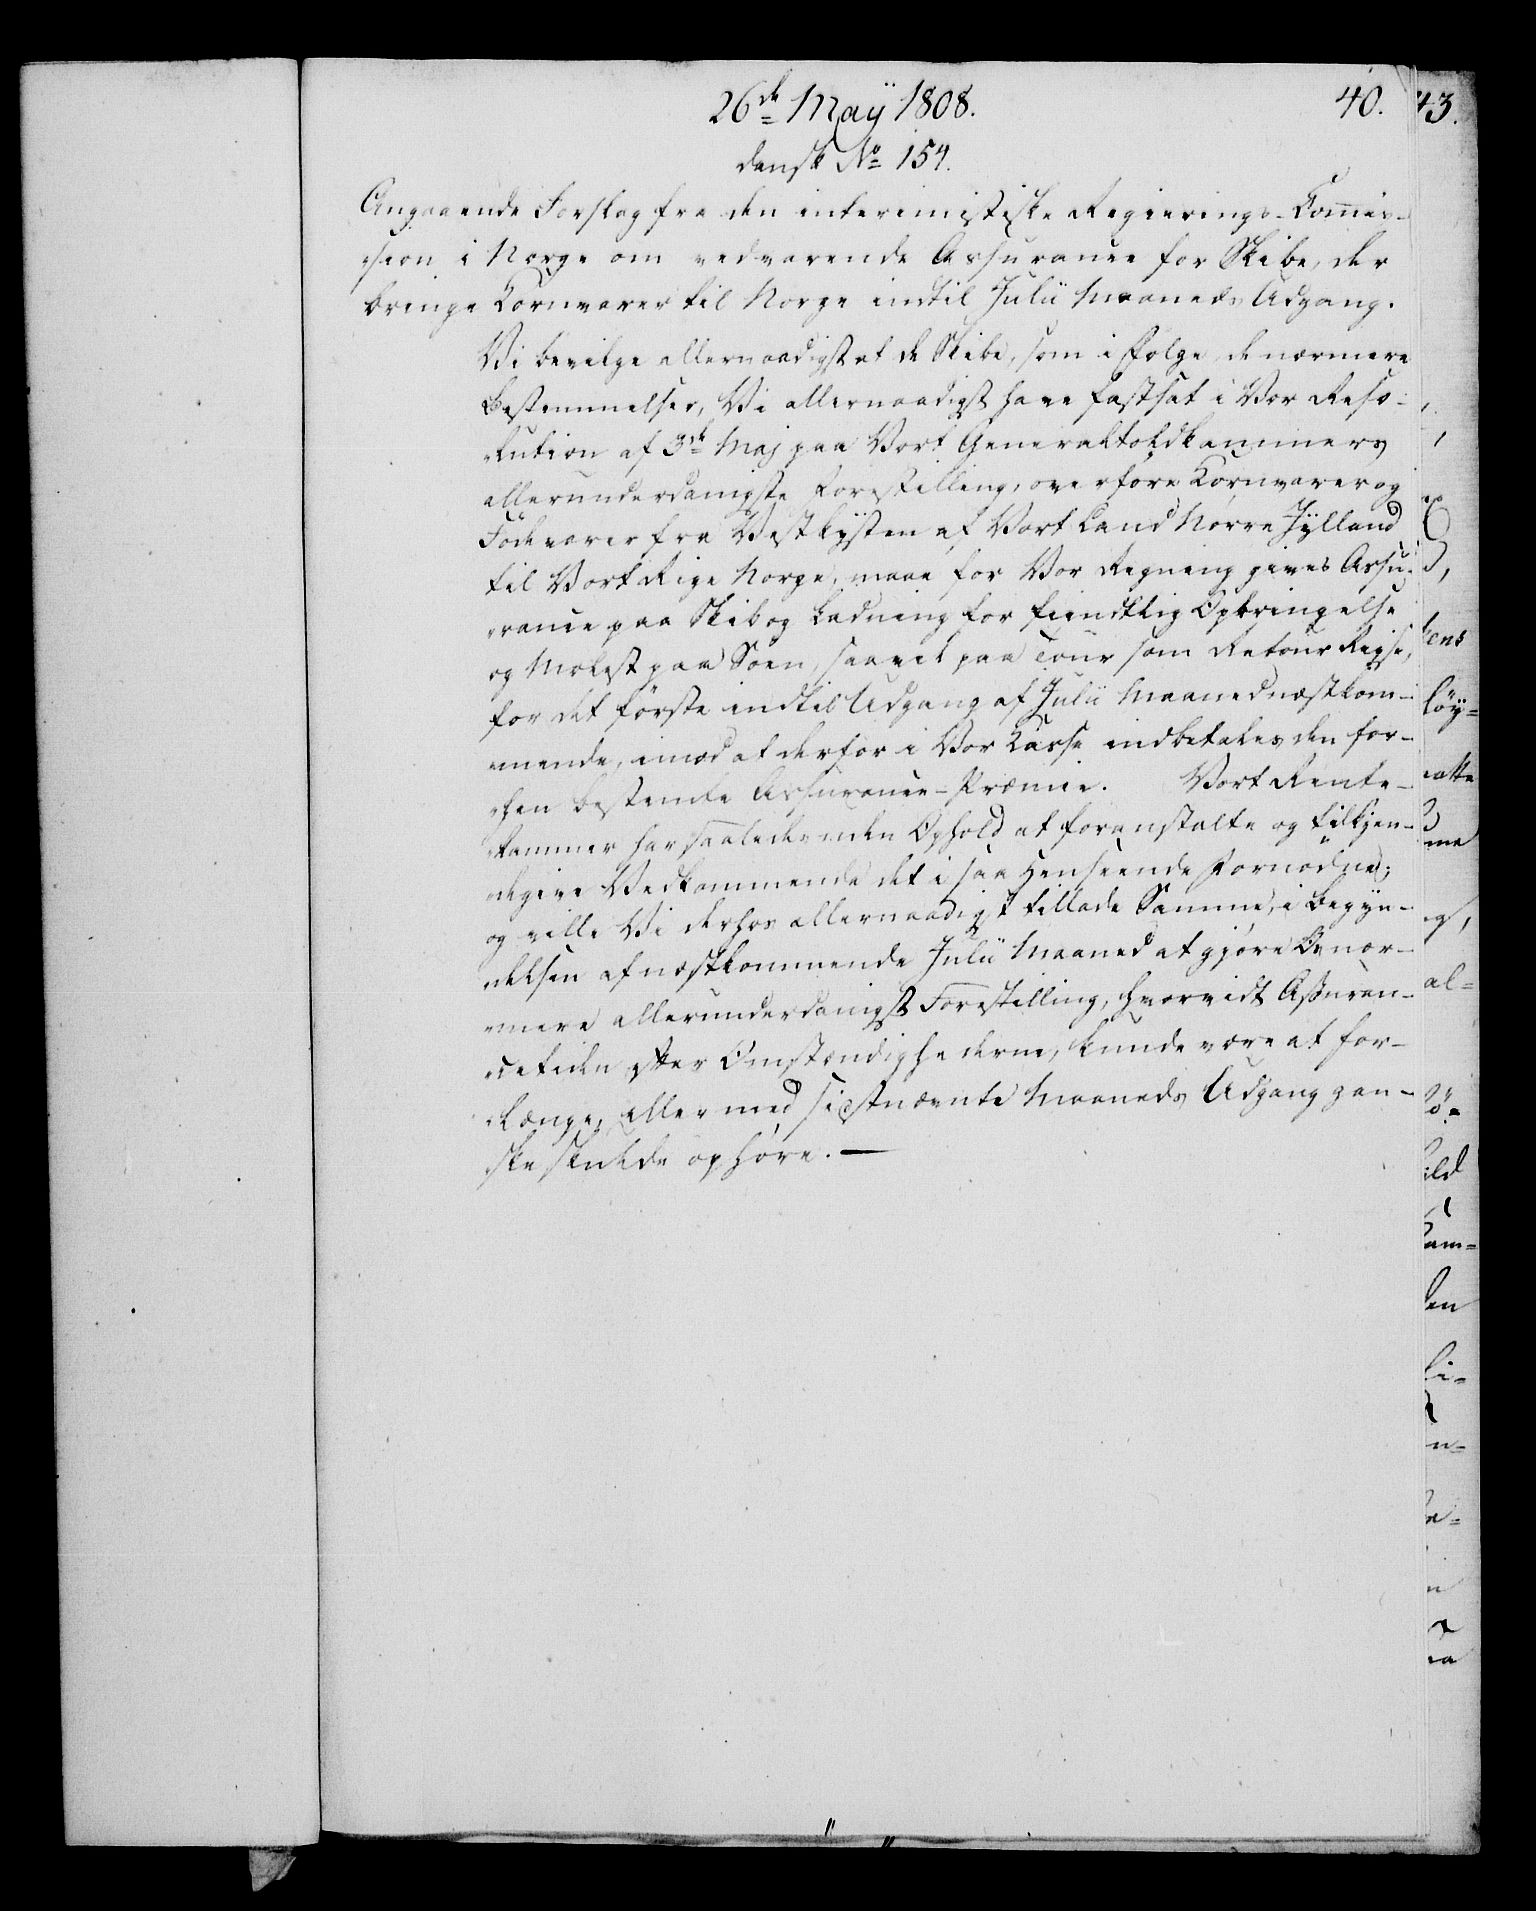 26de Maÿ 1808.
40.
43.
dansk No 154.
Angaaende Forslag fra den interimistiske Regierings-Com̄is-
sion i Norge om vedvarende Assurance for Skibe, der
bringe Kornvarer til Norge indtil Julii Maaneds Udgang.
Vi bevilge allernaadigst at de Skibe, som i Følge de nærmere
Bestemmelser, Vi allernaadigst have fastsat i Vor Reso-
lution af 3de Maj paa Vort Generaltoldkammers
allerunderdanigste Forestilling, overføre Kornvarer og
Fødevarer fra Vestkÿsten af Vort Land Nørre Jÿlland
til Vort Rige Norge, maae for Vor Regning gives Assu-
rance paa Skib og Ladning for fiendtlig Opbringelse
og Molest paa Søen, saavel paa Tour som Retour Rejse,
for det første indtil Udgang af Julii Maaned næstkom-
mende, imod at derfor i Vor Kasse indbetales den for-
hen bestemte Assurance-Præmie. Vort Rente-
kammer har saaledes uden Ophold at foranstalte og tilkjen-
degive Vedkommende det i saa Henseende Fornødne;
og ville Vi derhos allernaadigst tillade Samme, i Begÿn-
delsen af næstkommende Julii Maaned at gjøre Os nær-
mere allerunderdanigst Forestilling, hvorvidt Assuran-
cetiden efter Omstændighederne, kunde være at for-
længe, eller med sidstnævnte Maaneds Udgang gan-
ske skulde ophøre. —